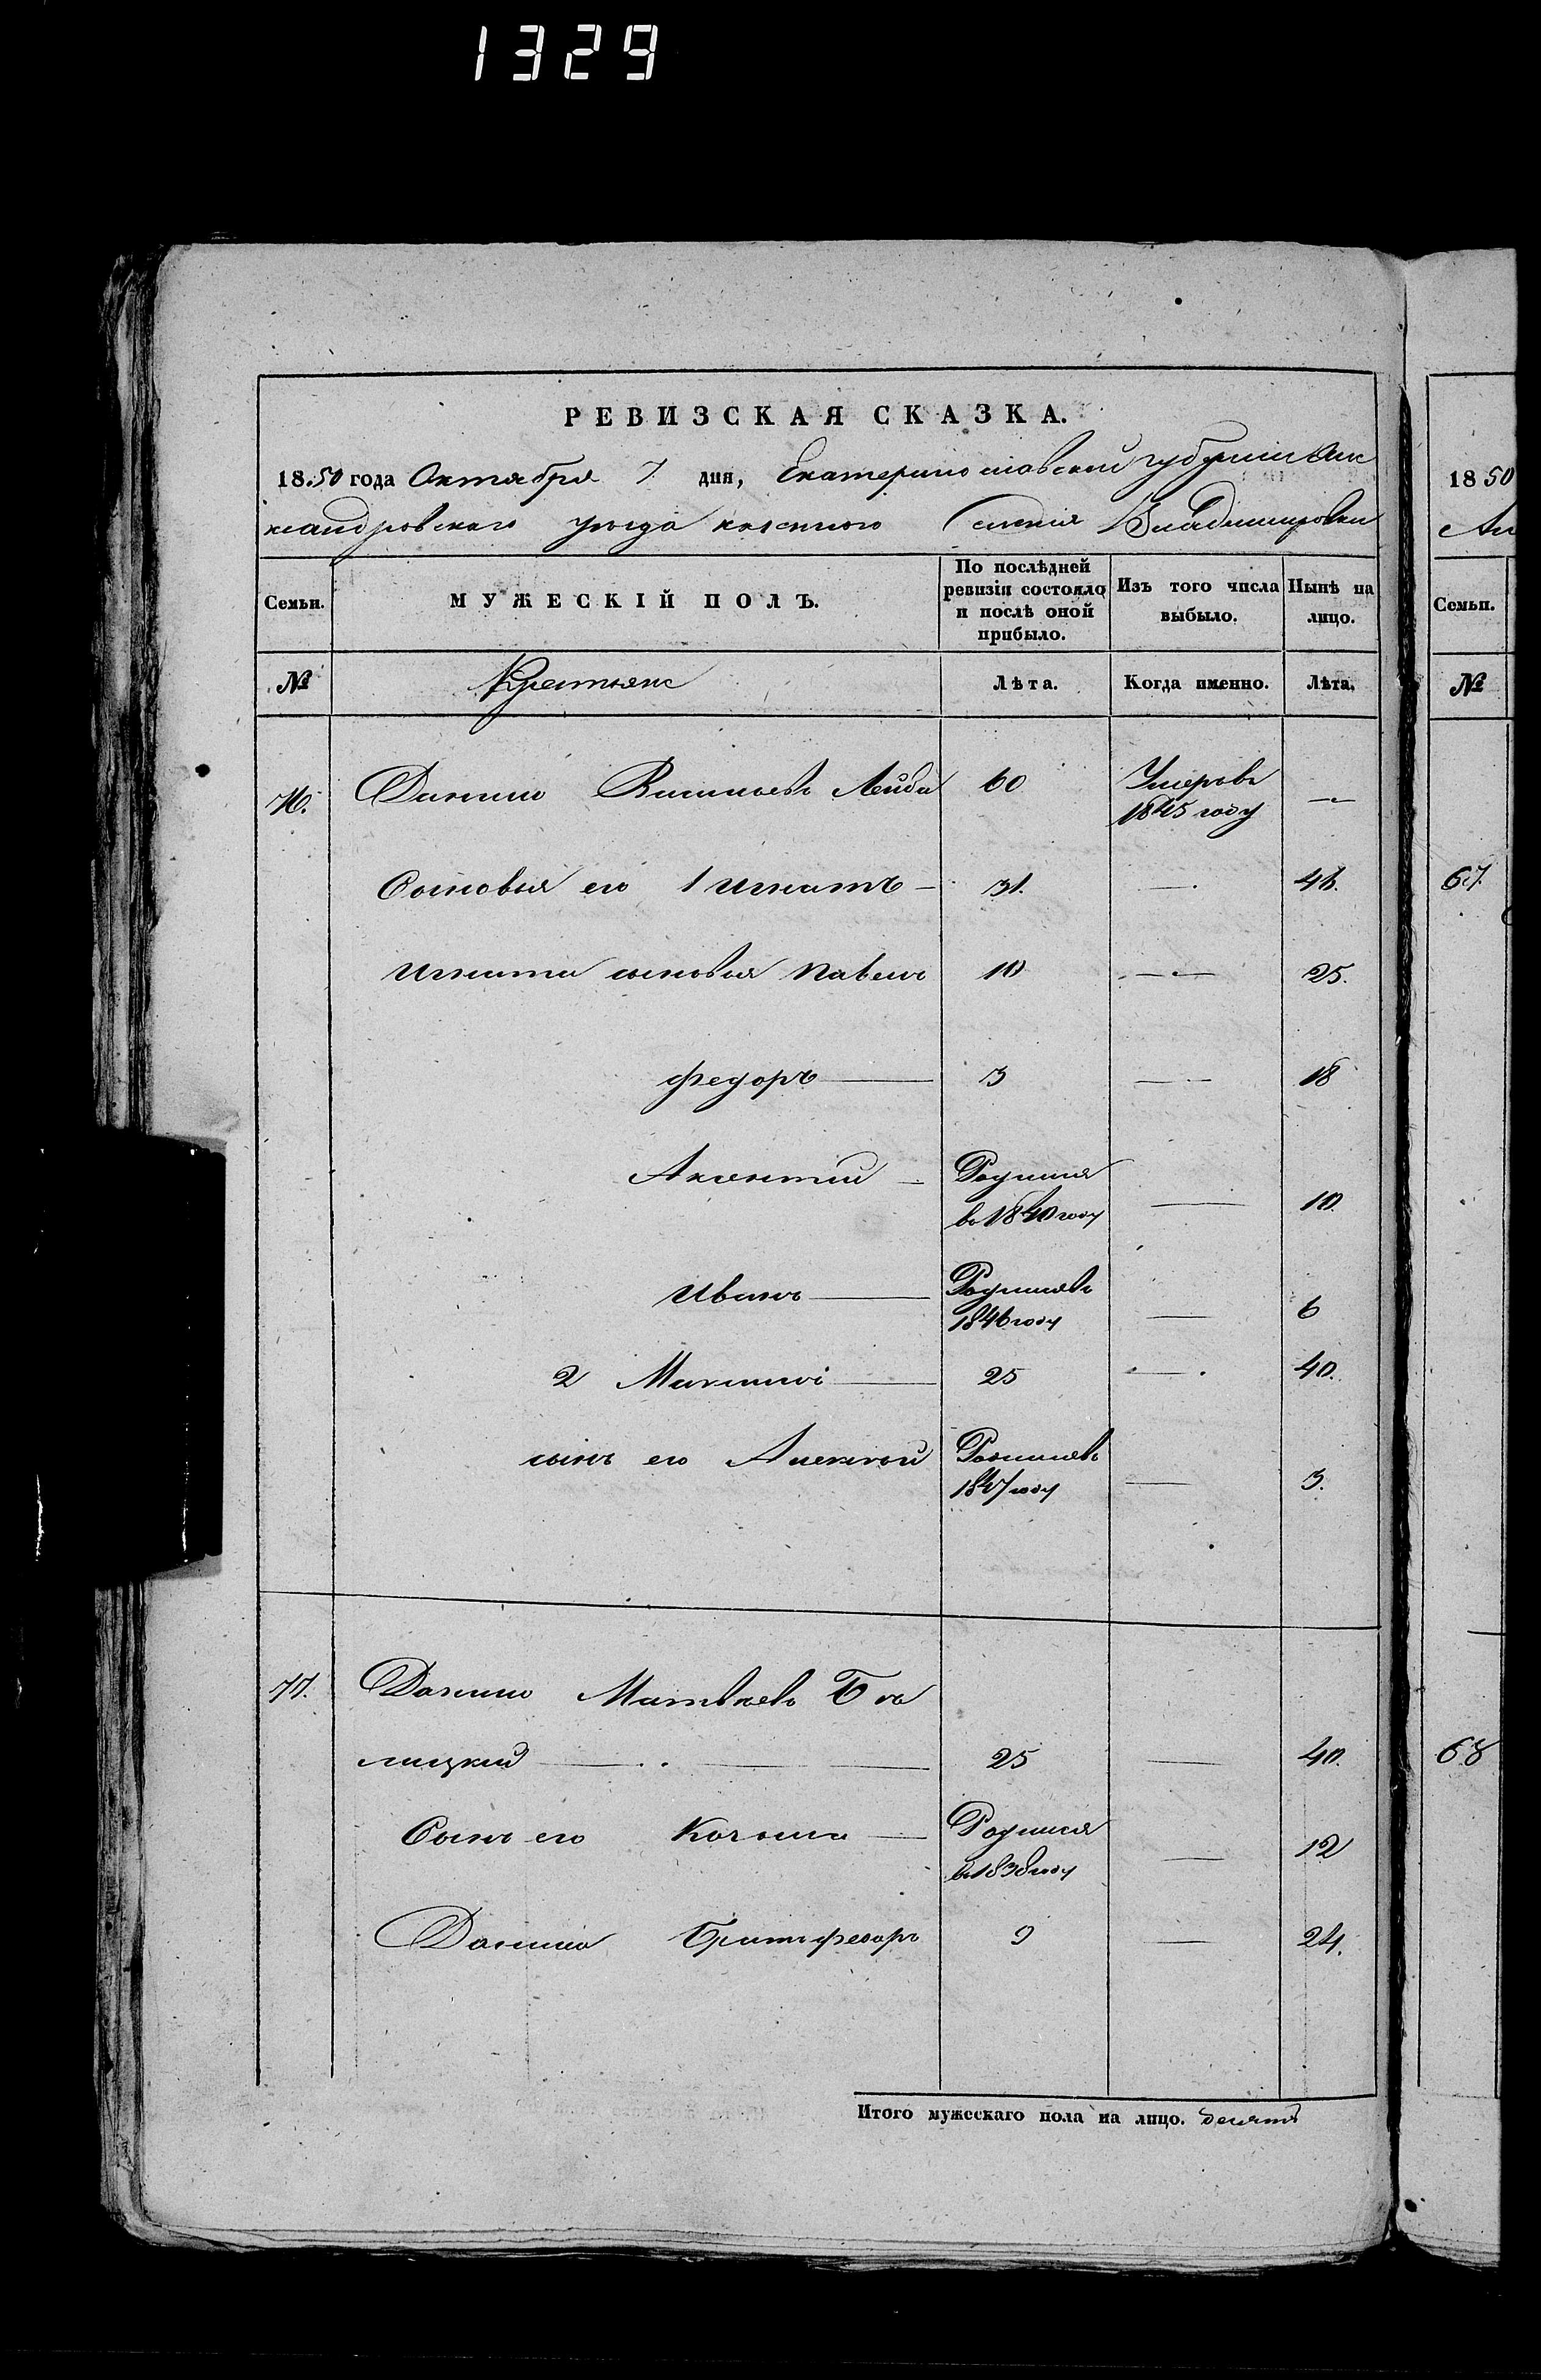 1329
РЕВИЗСКАЯ СКАЗКА.
1850 года Октября 7 дня, Екатеринославской губернии Алек
сандровскаго уезда казенного Селения Владимировки
Семьи.
МУЖЕСКІЙ ПОЛЪ.
По послѣдней ревизіи состояло и послѣ оной прибыло.
Изъ того числа выбыло.
Нынѣ на лицо.
№
Крестьяне
Лѣта.
Когда именно.
Лѣта.
76. Данило Васильевъ Лейба 60 Умеръ въ —
1845 году
Сыновья его 1 Игнатъ — 31. — 46.
Игната сыновья Павелъ 10 — 25.
Федоръ — 3 — 18
Аксентий — Родился
въ 1840 году — 10.
Иванъ — Родился въ
1846 году — 6
2 Максимъ — 25 — 40.
сынъ его Алексей Родился въ
1847 году — 3.
77. Данило Матвеевъ
лицкий — 25 — 40.
Сынъ его — Родился
въ 1838 году — 12
Данила Братъ Федоръ 9 — 24.
Итого мужескаго пола на лицо. десять
1850
Ал
Семьи.
№
67.
68